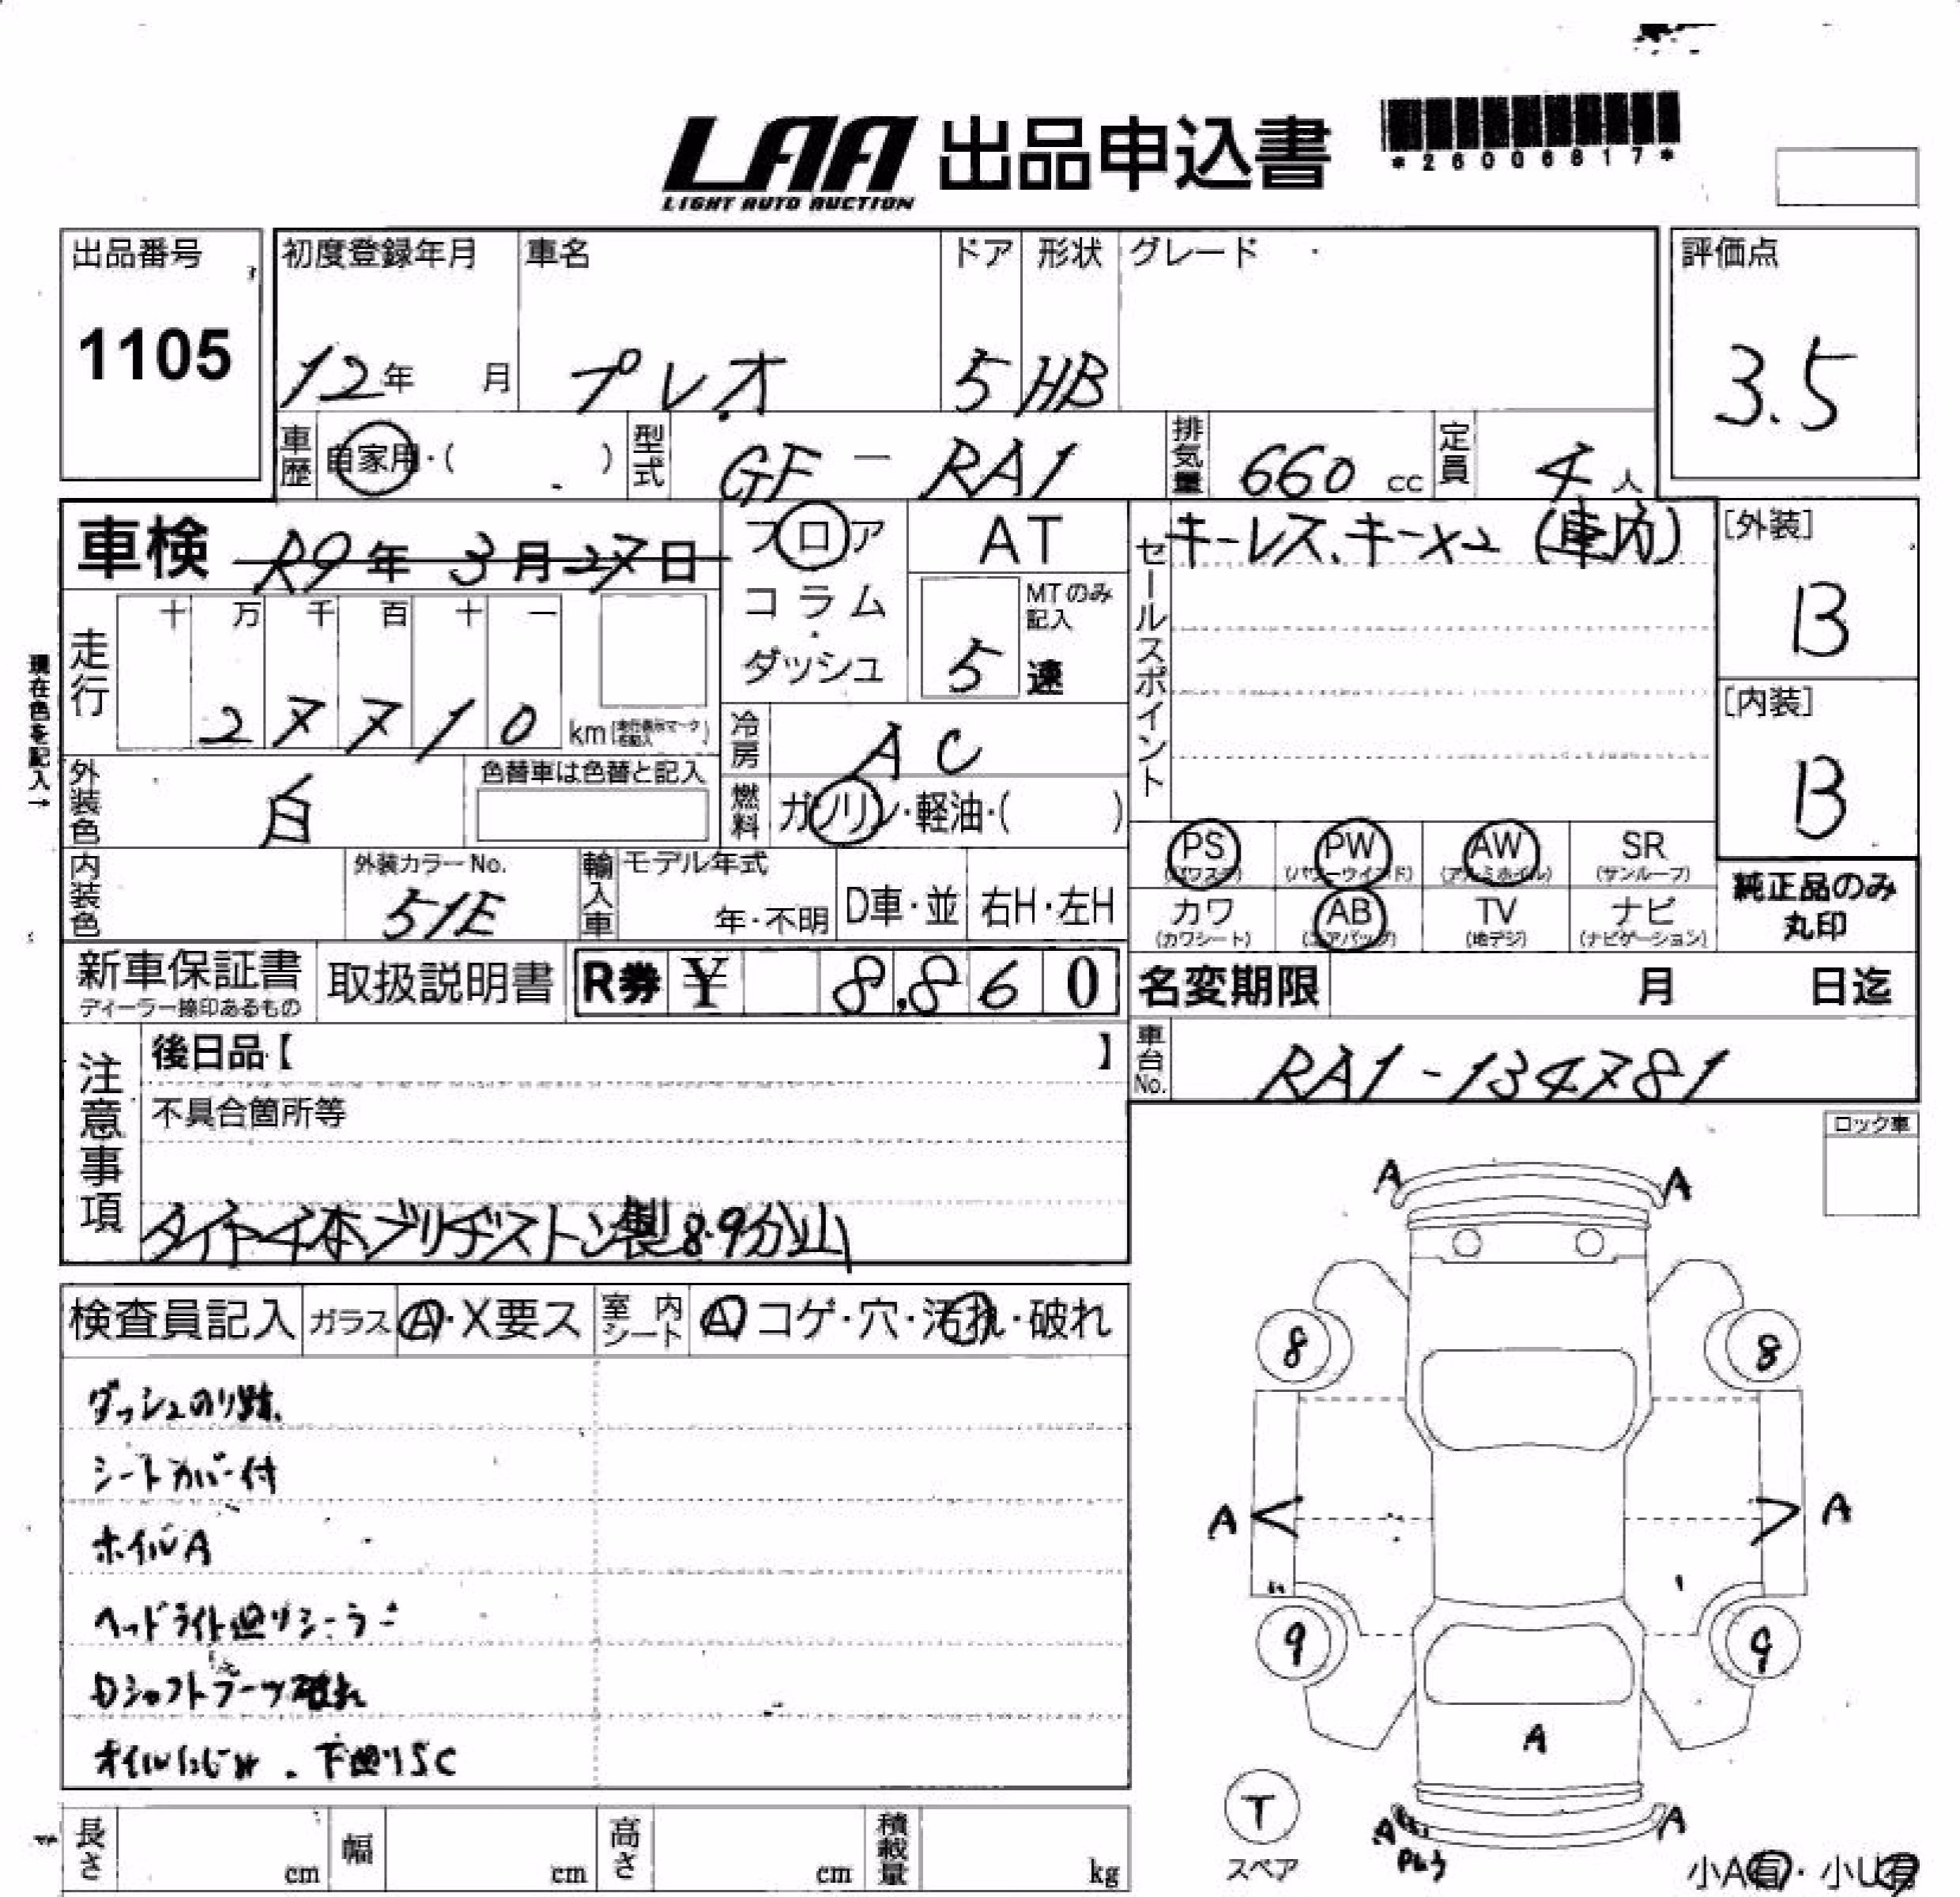 LAA 出品申込書
LIGHT AUTO AUCTION
*26006817*
出品番号
1105
初度登録年月 車名 ドア 形状 グレード
12年 月 プレオ 5 HB
評価点
3.5
車歴 自家用・( ) 型式 GF - RA1 排気量 660 cc 定員 4 人
車検 R9年 3月 27日
フロア
コラム
ダッシュ
AT
MTのみ記入
5 速
セールスポイント
キーレス、キー×2 (車内)
[外装]
B
[内装]
B
現在色を記入→
走行
十 万 千 百 十 一
2 7 7 1 0 km
冷房 AC
外装色 白
色替車は色替と記入
燃料 ガソリン・軽油・( )
PS (パワステ) PW (パワーウインド) AW (アルミホイル) SR (サンルーフ)
カワ (カワシート) AB (エアバッグ) TV (地デジ) ナビ (ナビゲーション)
純正品のみ
丸印
内装色
外装カラーNo.
51E
輸入車 モデル年式
年・不明 D車・並 右H・左H
新車保証書
ディーラー捺印あるもの
取扱説明書
R券 ¥ 8,860
名変期限 月 日迄
車台No. RA1-134781
注意事項
後日品【 】
不具合箇所等
タイヤ4本ブリヂストン製8.9分山
ロック車
検査員記入 ガラス A・X要ス 室内シート A コゲ・穴・汚れ・破れ
ダッシュのり跡、
シートカバー付
ホイルA
ヘッドライト廻りシーラー
Dシャフトブーツ破れ
オイルにじみ. 下廻りSC
A A
8 8
A A
9 9
A
T
スペア
A A
小A有・小U有
長さ cm 幅 cm 高さ cm 積載量 kg